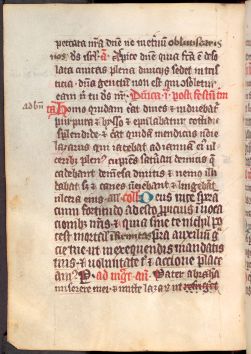 peccata nr̄a dn̄e ne in eternū obliuiscaris
nos ds isrl' a Aspice dn̄e quia fc̄a ē deso
lata ciuitas plena diuicijs sedet in tristi
cia dn̄a gencium non est qui soletur
eam n̄ tu ds nr̄ Dn̄ica i post
ad bn̄
Homo quidam erat diues et induebat'
purpura et bysso et epulabatur cottidie
splendide et erat quidam mendicus nomine
lazarus qui iacebat ad ianuā ei' ul
ceribs plen' cupiēs saturari de micis q̄
cadebant de mēsa diuitis et nemo illi
dabat sed et canes ueniebant et lingebāt
ulcera eius coll' Deus in te spera
cium fortitudo adesto propicius inuoca
cionibs nr̄is et quia sine te nichil po
test mortalis infirmitas pr̄a auxiliū gr̄
cie tue ut in exequendis mandatis
tuis et uoluntate t' et accione place
am' P ad mgt' an' Pater abraham
miserere mei et mitte lazarū ut